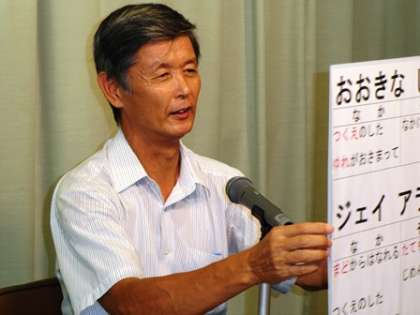 おおきな
なか
つくえのした なか
ゆれがおさまって
ジェイ ア
なか
まどからはなれる たて
じめ
つくえのした
からだ